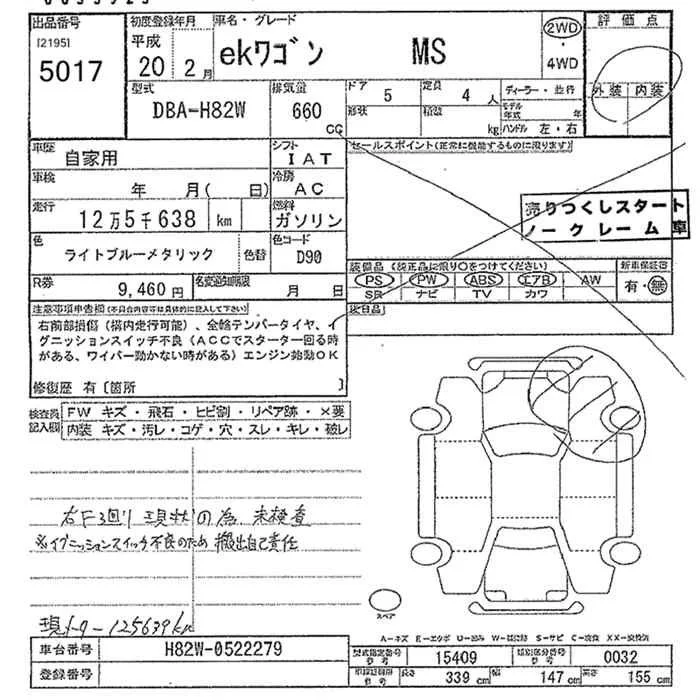 出品番号 初度登録年月 車名・グレード 評価点
[2195]
5017
平成
20 2月
ekワゴン MS
2WD
・
4WD
外装 内装
型式 排気量 ドア 5 定員 4人 ディーラー・並行
DBA-H82W 660 CC
形状 積載 kg モデル年式 年
ハンドル 左・右
車歴 自家用 シフト IAT
セールスポイント(正常に機能するものに限ります)
車検 年 月( 日) 冷房 AC
走行 12万5千638 km 燃料 ガソリン
売りつくしスタート
ノークレーム車
色 ライトブルーメタリック 色替 色コード D90
装備品(純正品に限り○をつけてください) 新車保証書
PS PW ABS エアB AW 有・無
SR ナビ TV カワ
R券 9,460円 名変期限 月 日
後日品
注意事項申告欄(不具合内容等は具体的に記入して下さい)
右前部損傷(構内走行可能)、全輪テンパータイヤ、イ
グニッションスイッチ不良(ACCでスターター回る時
がある、ワイパー動かない時がある)エンジン始動OK
修復歴 有〔箇所 〕
検査員記入欄
FW キズ・飛石・ヒビ割・リペア跡・×要
内装 キズ・汚レ・コゲ・穴・スレ・キレ・破レ
右F廻り 現状の為 未検査
※イグニッションスイッチ不良のため 搬出自己責任
現メーター125639km
スペア
車台番号 H82W-0522279
登録番号
型式指定番号 参考 15409 類別区分番号 参考 0032
長さ 339 cm 幅 147 cm 高さ 155 cm